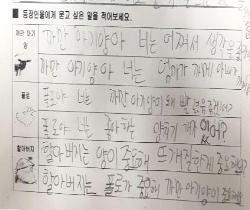 등장인물에게 묻고 싶은 말을 적어보세요.
까만 아기양
까만 아기양아 너는 어쩌서 생각을
까만 아기양아 너는 엄마가 까매? 아빠가
폴로
폴로야 너는 까만 아기양이 왜
폴로야 너는 좋아하는 양이 있어?
할아버지
할아버지는 양이 중요해 뜨개질하게 중요해요?
할아버지는 폴로가 중요해 까만 아기양이